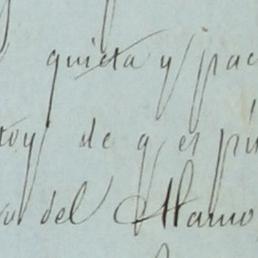 quieta y pac
toy de q es pu
del Alamo